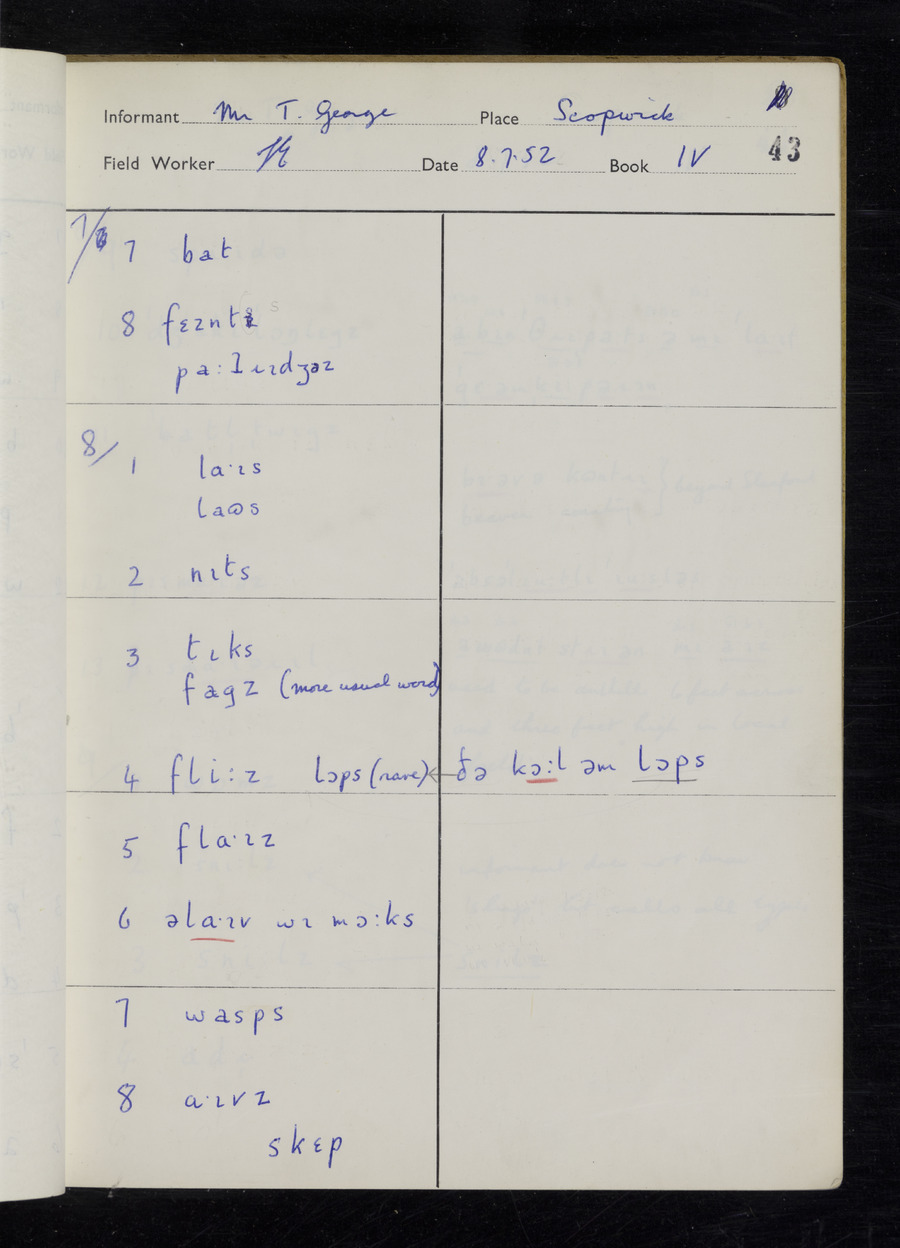 Informant Mr T. George Place Scopwick
Field Worker Date 8.7.52 Book IV 43
7/
7 bat
8 fɛznt
pa:tɹɪdʒəz
8/
1 la·ɪs
laʊs
2 nɪts
3 tɪks
fagz (more usual word)
4 fli:z lɔps (rare) ← ðə kɔ:l əm lɔps
5 fla·ɪz
6 əla·ɪv wɪ mɔ:ks
7 wasps
8 a·ɪvz
skɛp